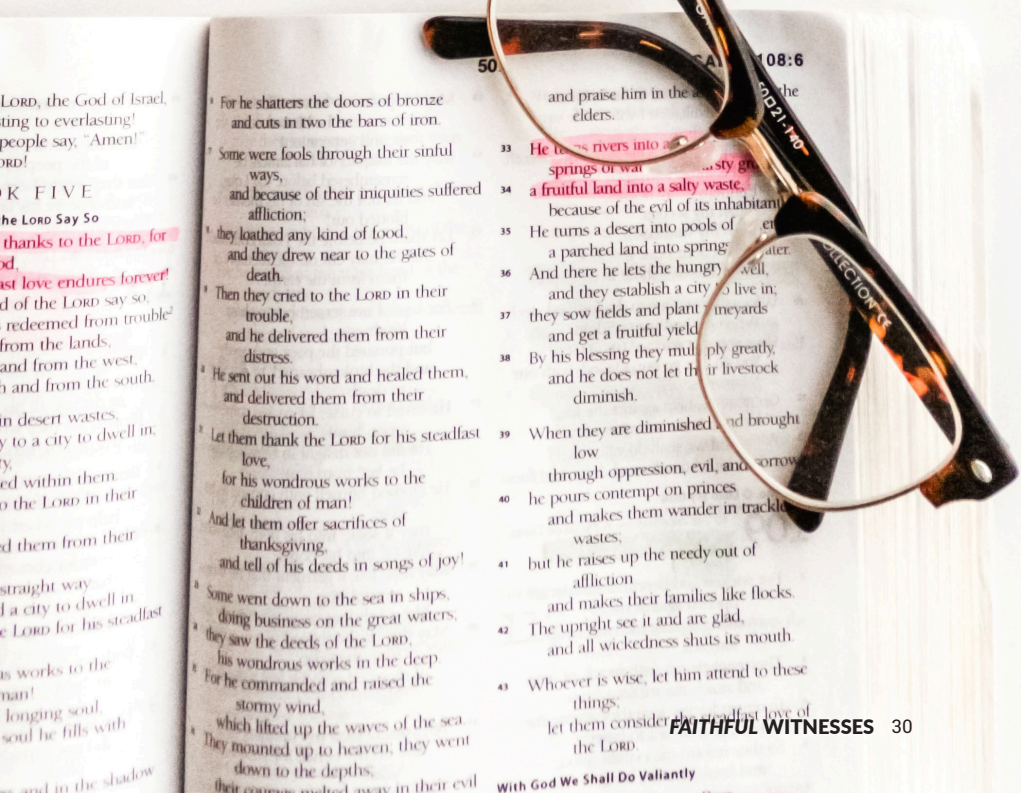 LORD, the God of Israel,
ting to everlasting!
people say, "Amen!"
ORD!
K FIVE
the LORD Say So
thanks to the LORD, for
od,
ast love endures forever!
d of the LORD say so,
redeemed from trouble²
from the lands,
and from the west,
h and from the south.
in desert wastes,
y to a city to dwell in;
ty,
ed within them.
o the LORD in their
d them from their
straight way
l a city to dwell in.
e LORD for his steadfast
us works to the
man!
longing soul,
soul he fills with
s and in the shadow
50
For he shatters the doors of bronze
and cuts in two the bars of iron.
Some were fools through their sinful
ways,
and because of their iniquities suffered
affliction;
they loathed any kind of food,
and they drew near to the gates of
death.
Then they cried to the LORD in their
trouble,
and he delivered them from their
distress.
He sent out his word and healed them,
and delivered them from their
destruction.
Let them thank the LORD for his steadfast
love,
for his wondrous works to the
children of man!
And let them offer sacrifices of
thanksgiving,
and tell of his deeds in songs of joy!
Some went down to the sea in ships,
doing business on the great waters;
they saw the deeds of the LORD,
his wondrous works in the deep.
For he commanded and raised the
stormy wind,
which lifted up the waves of the sea.
They mounted up to heaven; they went
down to the depths;
their courage melted away in their evil
108:6
and praise him in the the
elders.
33 He rivers into a
springs of
34 a fruitful land into a salty waste,
because of the evil of its inhabitant
35 He turns a desert into pools of
a parched land into springs
36 And there he lets the hungry well,
and they establish a city to live in;
37 they sow fields and plant vineyards
and get a fruitful yield.
38 By his blessing they multiply greatly,
and he does not let their livestock
diminish.
39 When they are diminished and brought
low
through oppression, evil, and sorrow,
40 he pours contempt on princes
and makes them wander in trackle
wastes;
41 but he raises up the needy out of
affliction
and makes their families like flocks.
42 The upright see it and are glad,
and all wickedness shuts its mouth.
43 Whoever is wise, let him attend to these
things;
let them consider the steadfast love of
the LORD.
With God We Shall Do Valiantly
50□21-140
OLLECTION CE
FAITHFUL WITNESSES 30